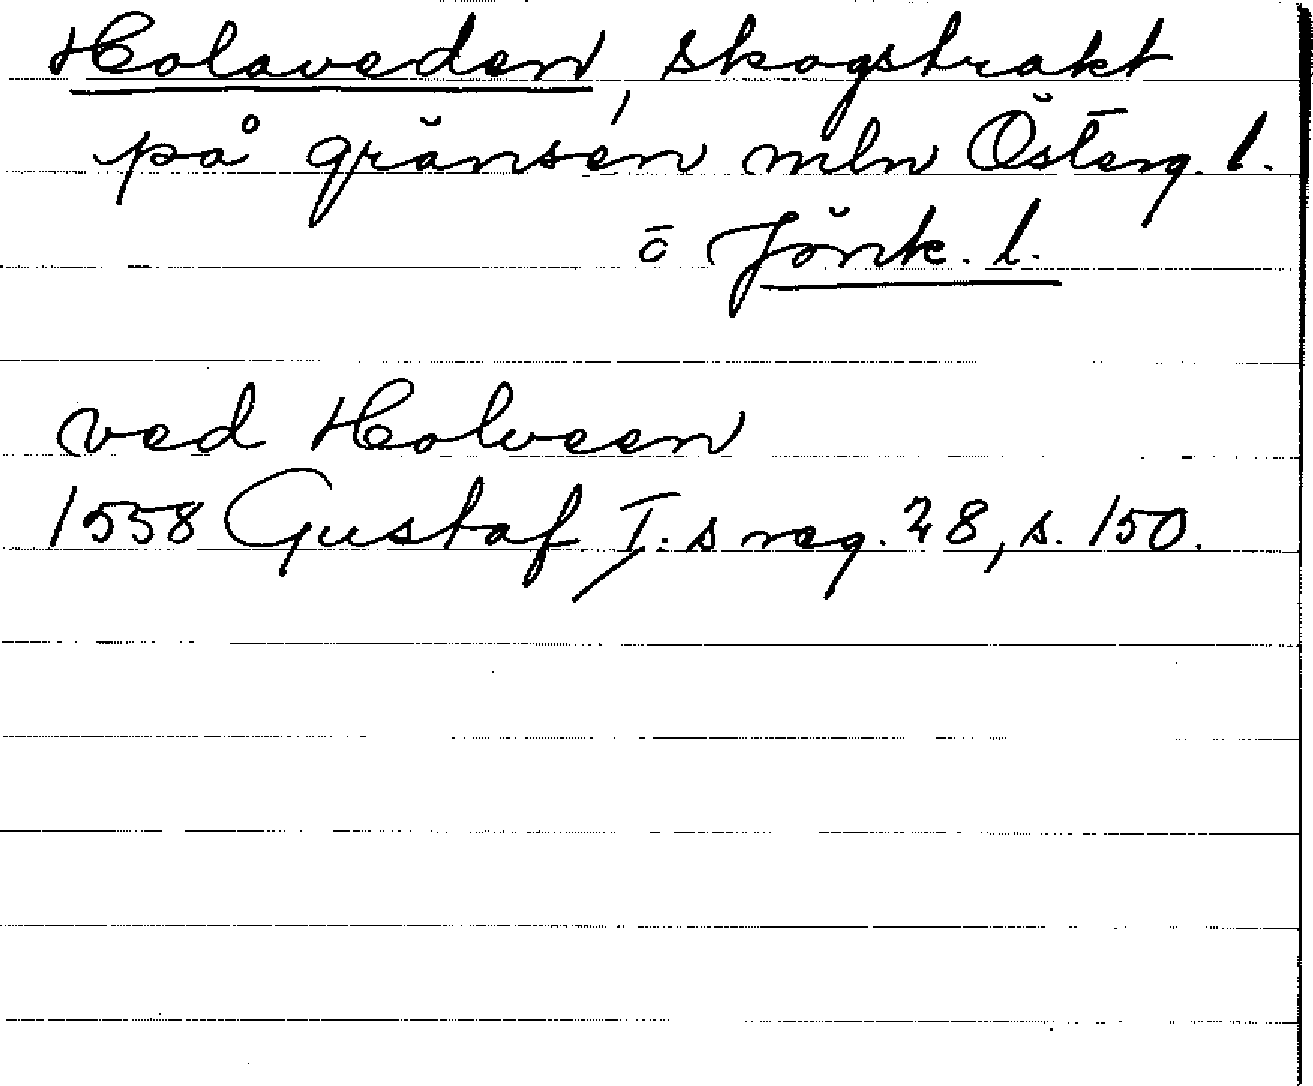 Holaveden, skogstrakt
på gränsen mln Österg. l.
o Jönk. l.
ved Holveen
1558 Gustaf I:s reg. 28, s. 150.